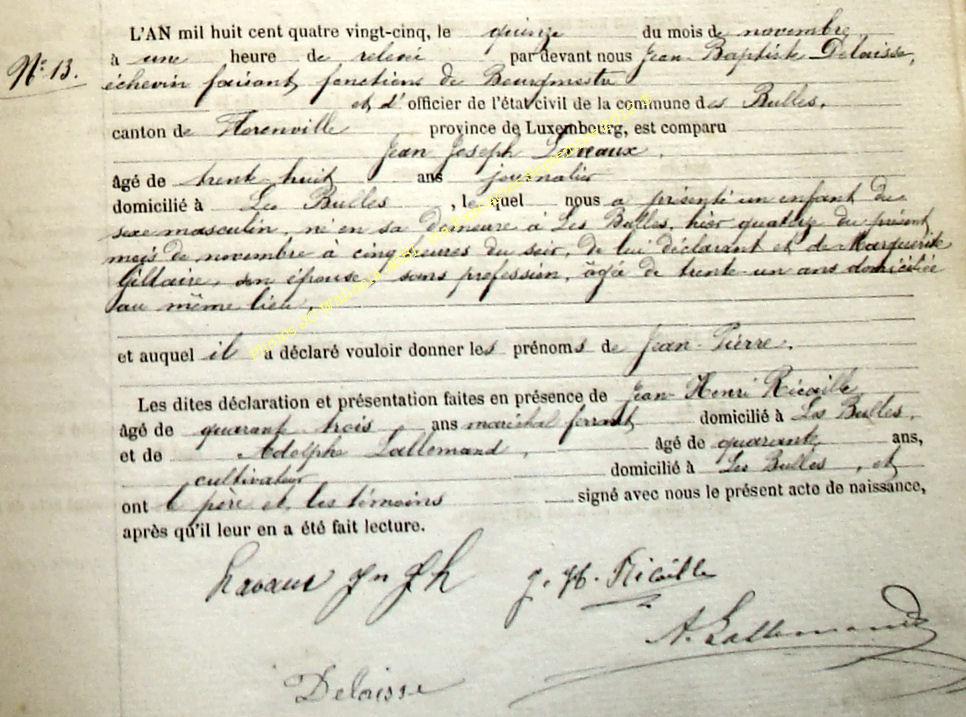 L'AN mil huit cent quatre vingt-cinq, le quinze du mois de novembre
à une heure de relevée par devant nous Jean Baptiste Delaisse,
N° 13.
échevin faisant fonctions de Bourgmestre
et d'officier de l'état civil de la commune des Bulles,
canton de Florenville province de Luxembourg, est comparu
Jean Joseph Lavaux,
âgé de trente-huit ans journalier
domicilié à Les Bulles, lequel nous a présenté un enfant du
sexe masculin, né en sa demeure à Les Bulles, hier quatorze du présent
mois de novembre à cinq heures du soir, de lui déclarant et de Marguerite
Giltaire, son épouse, sans profession, âgée de trente-un ans domiciliée
au même lieu,
et auquel il a déclaré vouloir donner les prénoms de Jean-Pierre.
Les dites déclaration et présentation faites en présence de Jean-Henri Ricaille
âgé de quarante trois ans maréchal ferrant domicilié à Les Bulles,
et de Adolphe Lallemand, âgé de quarante ans,
cultivateur domicilié à Les Bulles, et
ont le père et les témoins signé avec nous le présent acte de naissance,
après qu'il leur en a été fait lecture.
Lavaux Jn Jh J. H. Ricaille
A. Lallemand
Delaisse